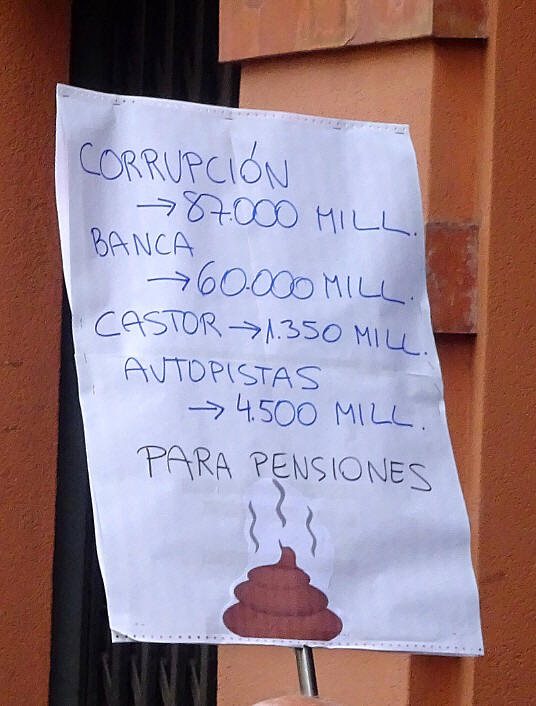 CORRUPCIÓN
→ 87.000 MILL.
BANCA
→ 60.000 MILL.
CASTOR → 1.350 MILL.
AUTOPISTAS
→ 4.500 MILL.
PARA PENSIONES